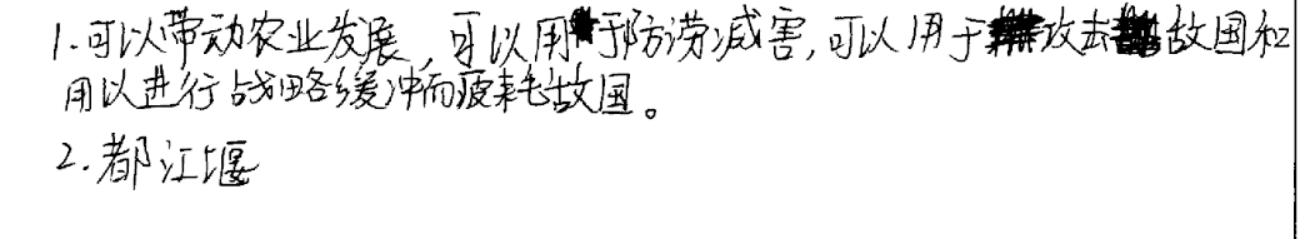 1.可以带动农业发展,可以用于防涝减害,可以用于攻去故国和
用以进行战略缓冲而疲耗故国。
2.都江堰